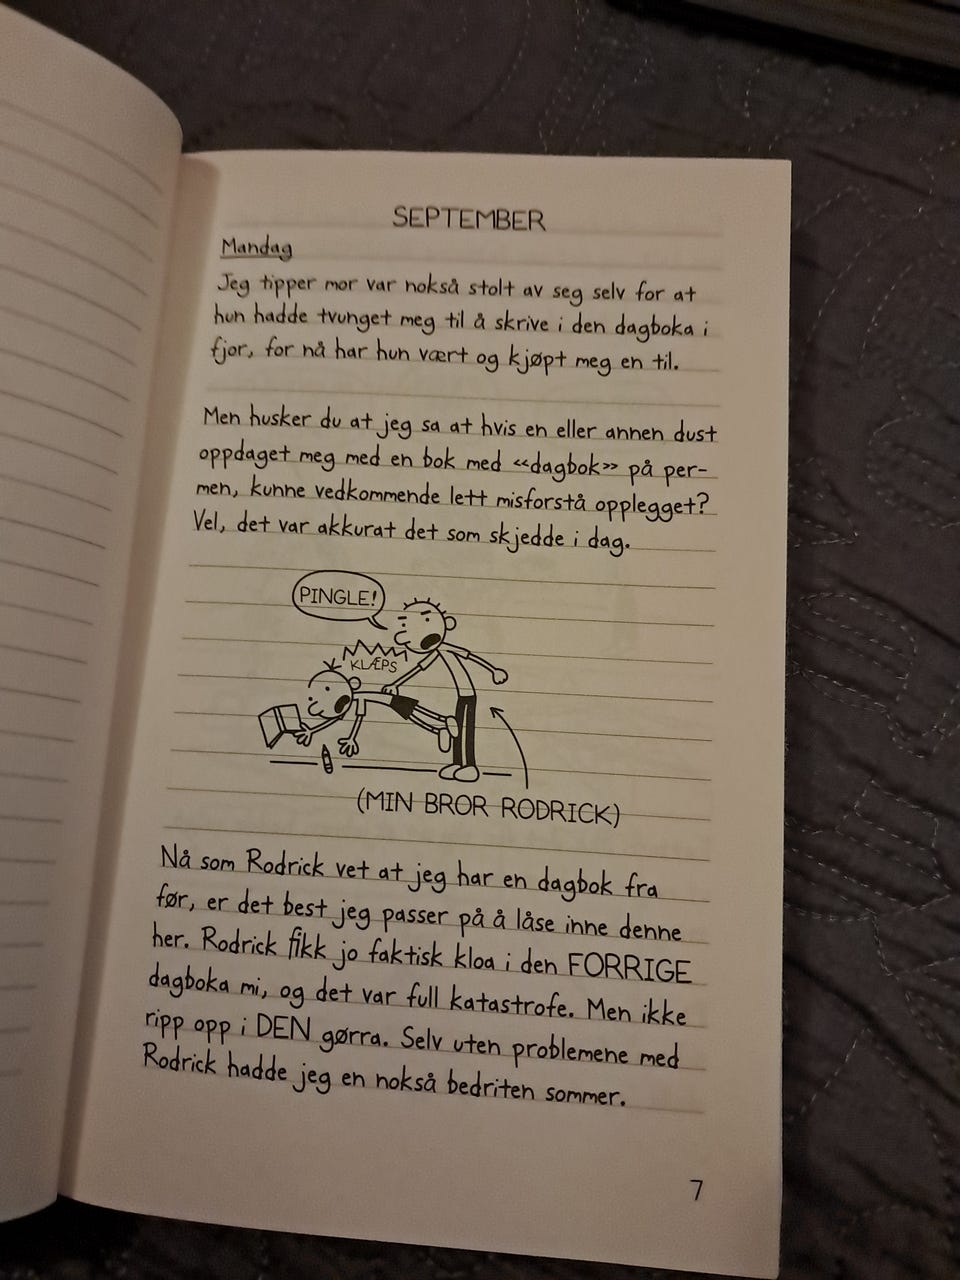 SEPTEMBER
Mandag
Jeg tipper mor var nokså stolt av seg selv for at
hun hadde tvunget meg til å skrive i den dagboka i
fjor, for nå har hun vært og kjøpt meg en til.
Men husker du at jeg sa at hvis en eller annen dust
oppdaget meg med en bok med «dagbok» på per-
men, kunne vedkommende lett misforstå opplegget?
Vel, det var akkurat det som skjedde i dag.
PINGLE!
KLÆPS
(MIN BROR RODRICK)
Nå som Rodrick vet at jeg har en dagbok fra
før, er det best jeg passer på å låse inne denne
her. Rodrick fikk jo faktisk kloa i den FORRIGE
dagboka mi, og det var full katastrofe. Men ikke
ripp opp i DEN gørra. Selv uten problemene med
Rodrick hadde jeg en nokså bedriten sommer.
7